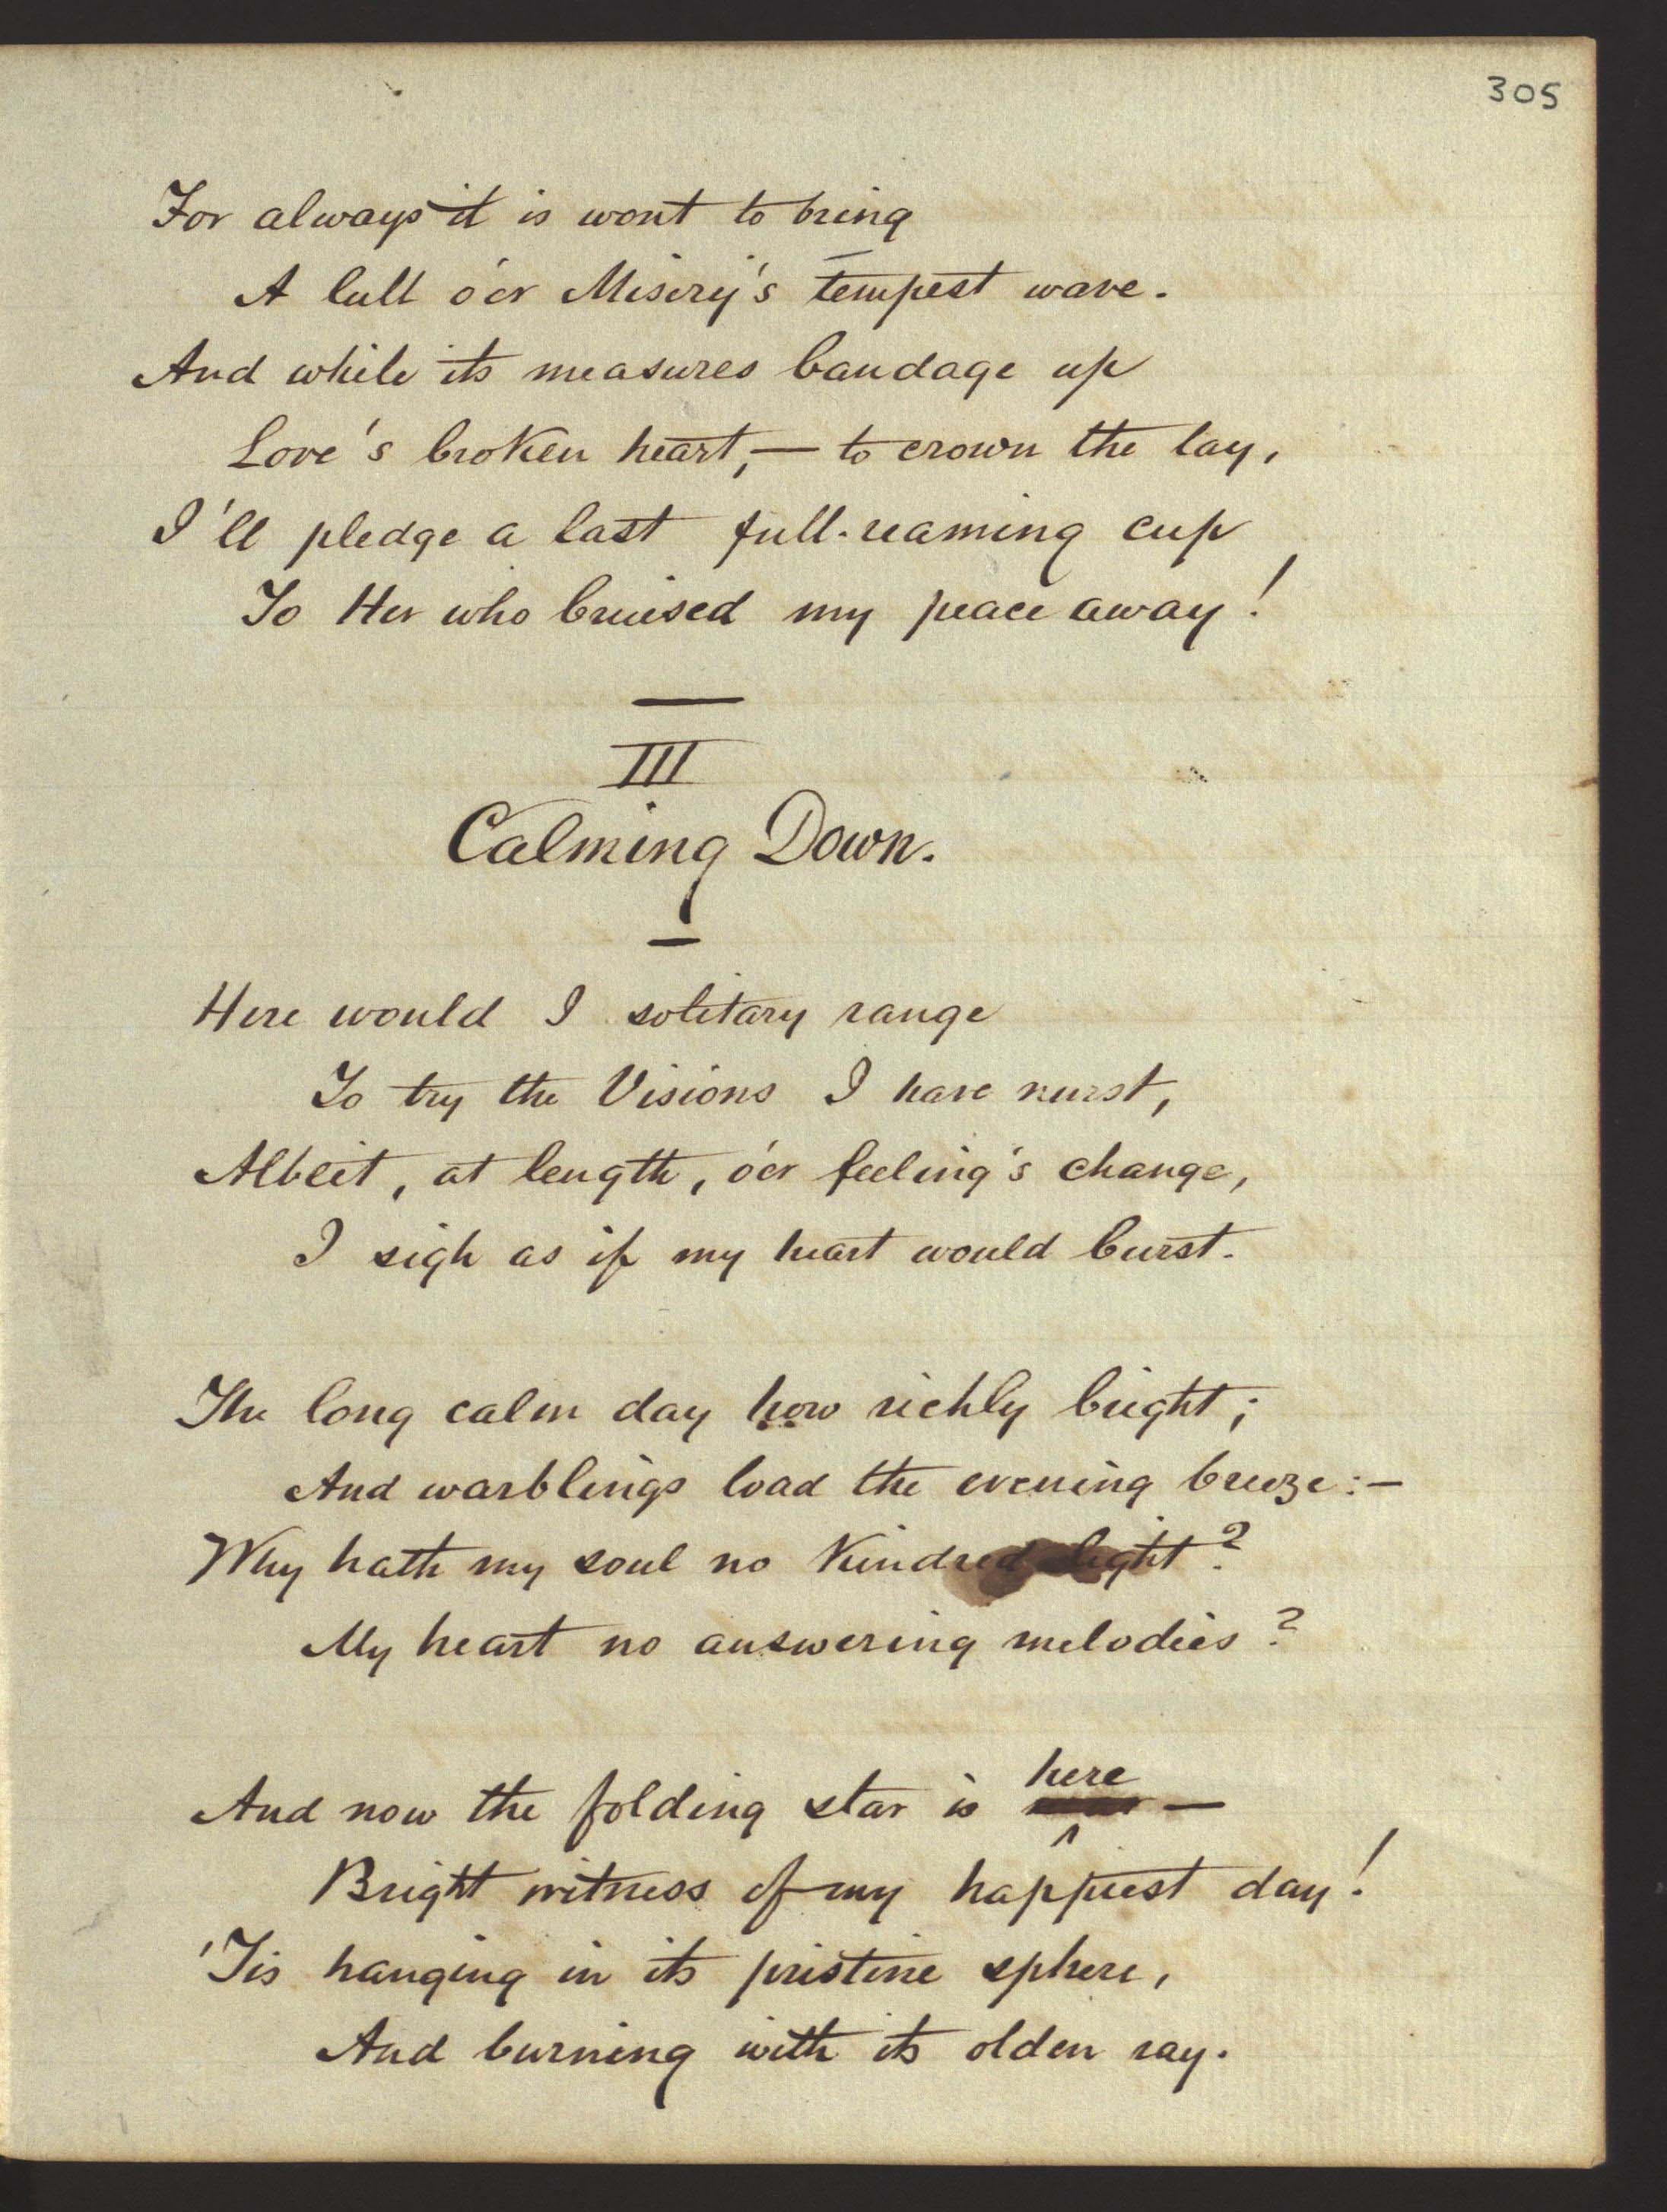 305
For always it is wont to bring
A lull o'er Misery's tempest wave.
And while its measures bandage up
Love's broken heart, — to crown the lay,
I'll pledge a last full-reaming cup
To Her who bruised my peace away!
III
Calming Down.
Here would I solitary range
To try the Visions I have nurst,
Albeit, at length, o'er feeling's change,
I sigh as if my heart would burst.
The long calm day how richly bright;
And warblings load the evening breeze:—
Why hath my soul no kindred light?
My heart no answering melodies?
here
And now the folding star is —
Bright witness of my happiest day!
'Tis hanging in its pristine sphere,
And burning with its olden ray.